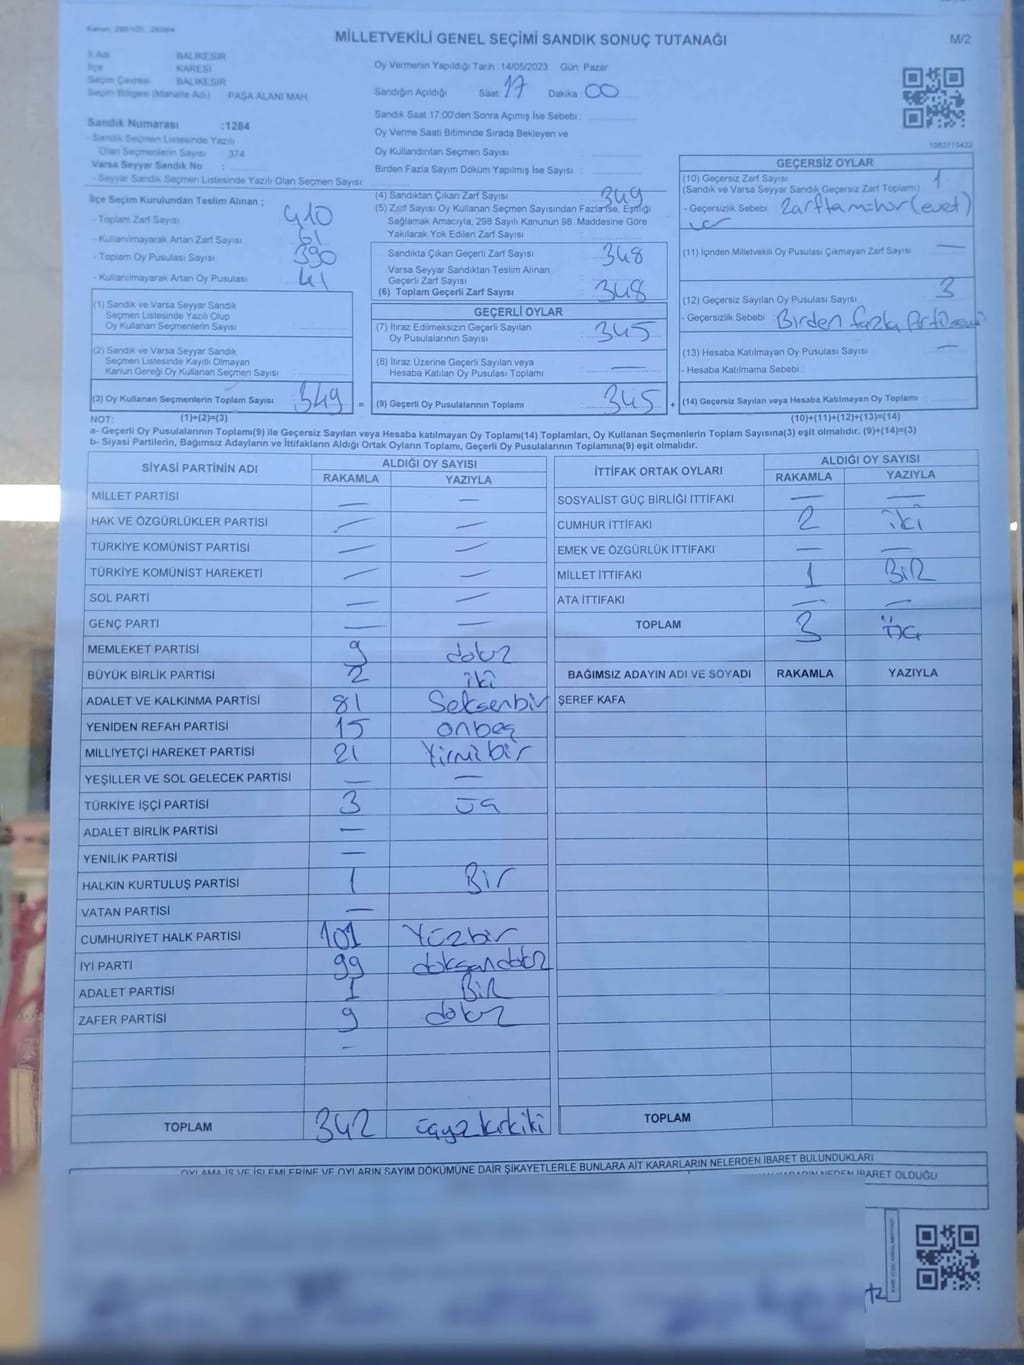 MİLLETVEKİLİ GENEL SEÇİMİ SANDIK SONUÇ TUTANAĞI
M/2
İl Adı BALIKESİR
İlçe KARESİ
Seçim Çevresi BALIKESİR
Seçim Bölgesi (Mahalle Adı) PAŞA ALANI MAH
Sandık Numarası :1284
- Sandık Seçmen Listesinde Yazılı
Olan Seçmenlerin Sayısı : 374
Varsa Seyyar Sandık No :
- Seyyar Sandık Seçmen Listesinde Yazılı Olan Seçmen Sayısı :
Oy Vermenin Yapıldığı Tarih :14/05/2023 Gün: Pazar
Sandığın Açıldığı Saat: 17 Dakika: 00
Sandık Saat 17.00'den Sonra Açımış İse Sebebi :
Oy Verme Saati Bitiminde Sırada Bekleyen ve
Oy Kullandırılan Seçmen Sayısı :
Birden Fazla Sayım Döküm Yapılmış İse Sayısı :
1083715422
İlçe Seçim Kurulundan Teslim Alınan ;
- Toplam Zarf Sayısı : 410
- Kullanılmayarak Artan Zarf Sayısı : 61
- Toplam Oy Pusulası Sayısı : 390
- Kullanılmayarak Artan Oy Pusulası : 41
(1) Sandık ve Varsa Seyyar Sandık
Seçmen Listesinde Yazılı Olup
Oy Kullanan Seçmenlerin Sayısı :
(2) Sandık ve Varsa Seyyar Sandık
Seçmen Listesinde Kayıtlı Olmayan
Kanun Gereği Oy Kullanan Seçmen Sayısı :
(3) Oy Kullanan Seçmenlerin Toplam Sayısı 349 =
(4) Sandıktan Çıkan Zarf Sayısı : 349
(5) Zarf Sayısı Oy Kullanan Seçmen Sayısından Fazla İse, Eşitliği
Sağlamak Amacıyla; 298 Sayılı Kanunun 98. Maddesine Göre
Yakılarak Yok Edilen Zarf Sayısı :
Sandıkta Çıkan Geçerli Zarf Sayısı : 348
Varsa Seyyar Sandıktan Teslim Alınan
Geçerli Zarf Sayısı :
(6) Toplam Geçerli Zarf Sayısı : 348
GEÇERLİ OYLAR
(7) İtiraz Edilmeksizin Geçerli Sayılan
Oy Pusulalarının Sayısı : 345
(8) İtiraz Üzerine Geçerli Sayılan veya
Hesaba Katılan Oy Pusulası Toplamı : —
(9) Geçerli Oy Pusulalarının Toplamı : 345 +
GEÇERSİZ OYLAR
(10) Geçersiz Zarf Sayısı : 1
(Sandık ve Varsa Seyyar Sandık Geçersiz Zarf Toplamı)
- Geçersizlik Sebebi : Zarfta mühür (evet)
(11) İçinden Milletvekili Oy Pusulası Çıkmayan Zarf Sayısı : —
(12) Geçersiz Sayılan Oy Pusulası Sayısı : 3
- Geçersizlik Sebebi : Birden fazla
(13) Hesaba Katılmayan Oy Pusulası Sayısı : —
- Hesaba Katılmama Sebebi :
(14) Geçersiz Sayılan veya Hesaba Katılmayan Oy Toplamı :
NOT: (1)+(2)=(3) (10)+(11)+(12)+(13)=(14)
a- Geçerli Oy Pusulalarının Toplamı(9) ile Geçersiz Sayılan veya Hesaba katılmayan Oy Toplamı(14) Toplamları, Oy Kullanan Seçmenlerin Toplam Sayısına(3) eşit olmalıdır. (9)+(14)=(3)
b- Siyasi Partilerin, Bağımsız Adayların ve İttifakların Aldığı Ortak Oyların Toplamı, Geçerli Oy Pusulalarının Toplamına(9) eşit olmalıdır.
SİYASİ PARTİNİN ADI ALDIĞI OY SAYISI
RAKAMLA YAZIYLA
MİLLET PARTİSİ — —
HAK VE ÖZGÜRLÜKLER PARTİSİ — —
TÜRKİYE KOMÜNİST PARTİSİ — —
TÜRKİYE KOMÜNİST HAREKETİ — —
SOL PARTİ — —
GENÇ PARTİ — —
MEMLEKET PARTİSİ 9 dokuz
BÜYÜK BİRLİK PARTİSİ 2 iki
ADALET VE KALKINMA PARTİSİ 81 Seksenbir
YENİDEN REFAH PARTİSİ 15 onbeş
MİLLİYETÇİ HAREKET PARTİSİ 21 Yirmibir
YEŞİLLER VE SOL GELECEK PARTİSİ — —
TÜRKİYE İŞÇİ PARTİSİ 3 üç
ADALET BİRLİK PARTİSİ —
YENİLİK PARTİSİ —
HALKIN KURTULUŞ PARTİSİ 1 Bir
VATAN PARTİSİ —
CUMHURİYET HALK PARTİSİ 101 Yüzbir
İYİ PARTİ 99 doksandokuz
ADALET PARTİSİ 1 BiR
ZAFER PARTİSİ 9 dokuz
-
TOPLAM 342 üçyüzkırkiki
İTTİFAK ORTAK OYLARI ALDIĞI OY SAYISI
RAKAMLA YAZIYLA
SOSYALİST GÜÇ BİRLİĞİ İTTİFAKI — —
CUMHUR İTTİFAKI 2 iki
EMEK VE ÖZGÜRLÜK İTTİFAKI — —
MİLLET İTTİFAKI 1 BiR
ATA İTTİFAKI — —
TOPLAM 3 üç
BAĞIMSIZ ADAYIN ADI VE SOYADI RAKAMLA YAZIYLA
ŞEREF KAFA
TOPLAM
OYLAMA İŞ VE İŞLEMLERİNE VE OYLARIN SAYIM DÖKÜMÜNE DAİR ŞİKAYETLERLE BUNLARA AİT KARARLARIN NELERDEN İBARET BULUNDUKLARI
KARARIN NEDEN İBARET OLDUĞU